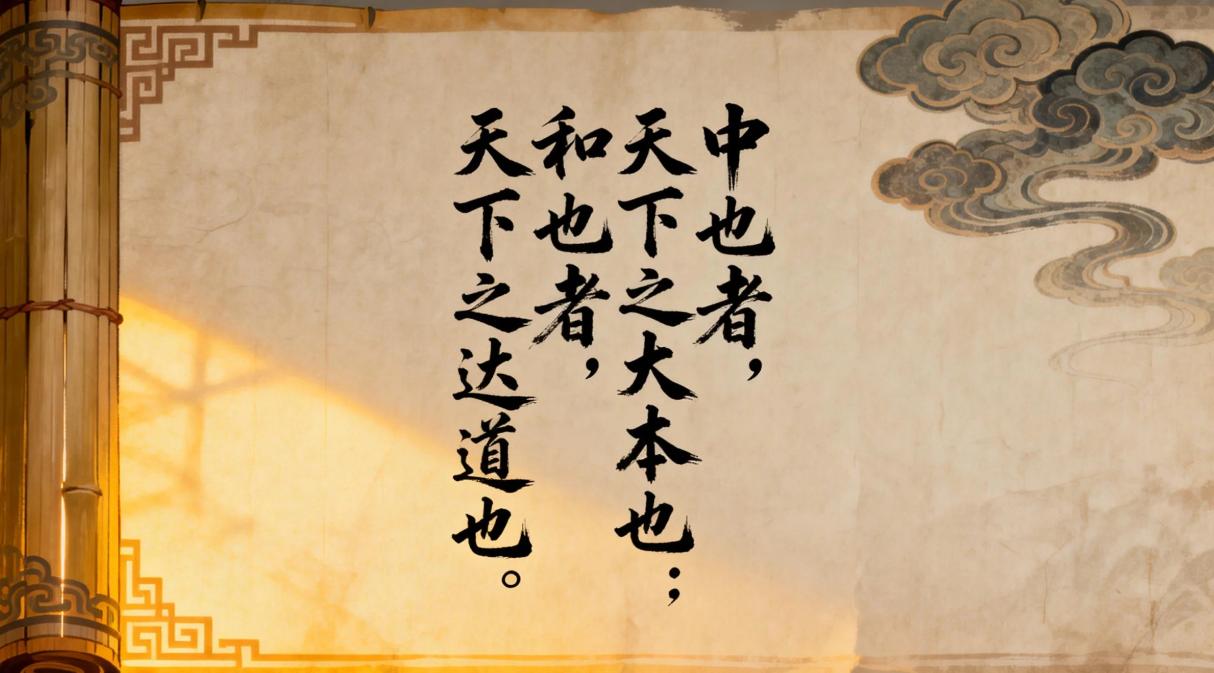 中也者，
天下之大本也；
和也者，
天下之达道也。